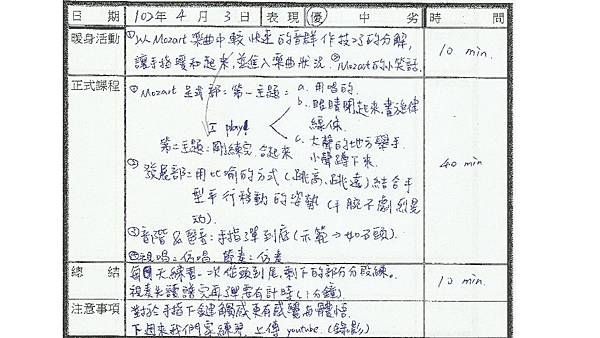 日期 102年4月3日 表現 優 中 劣 時間
暖身活動 ①以Mozart樂曲中較快速的音群作技巧的分解, 10 min.
讓手指暖和起來,並進入樂曲狀況. ②Mozart的小笑話.
正式課程 ①Mozart 呈示部:第一主題: a. 用唱的.
b. 眼睛閉起來,畫旋律
線條.
I play
c. 大聲的地方舉手
小聲蹲下來.
第二主題:剛練完 合起來
40 min
②發展部:用比喻的方式(跳高、跳遠)結合手
型平行移動的姿勢(手腕不劇烈晃
動).
③音階&琶音:手指彈到底(示範→
④視唱=仿唱. 節奏=仿奏
總結 每天練習一次從頭到尾.剩下的部分分段練. 10 min.
視奏先讀譜完再彈要有計時(1分鐘)
注意事項 對於手指下鍵觸感更有感覺與體悟.
下週來我們家練習.上傳 youtube.(錄影)